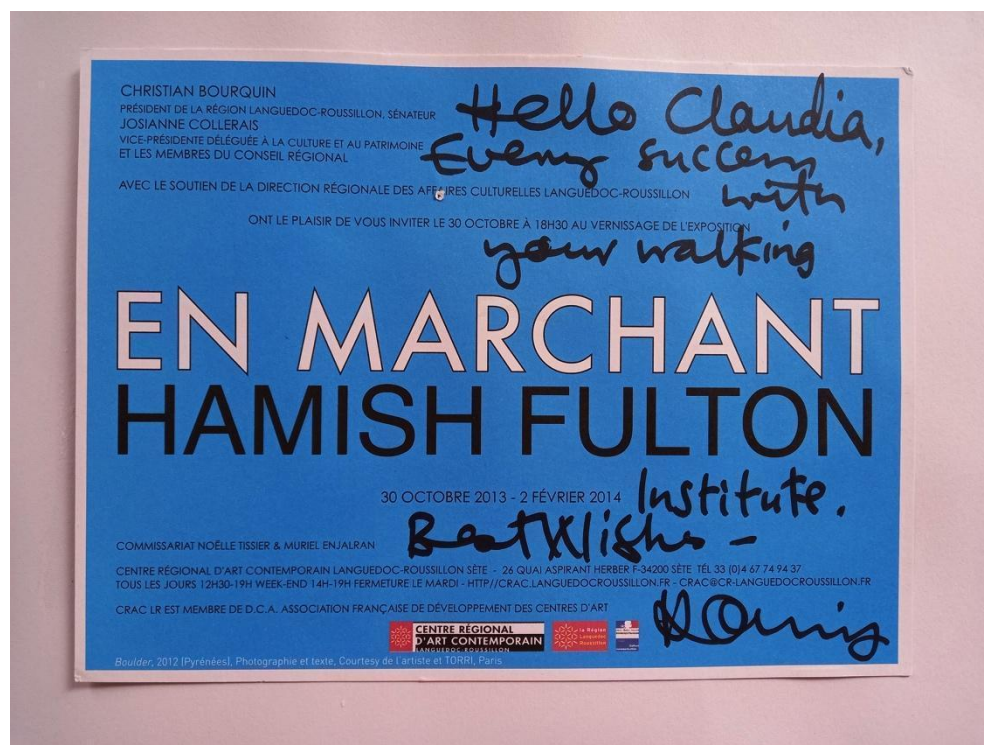 CHRISTIAN BOURQUIN
PRÉSIDENT DE LA RÉGION LANGUEDOC-ROUSSILLON, SÉNATEUR
JOSIANNE COLLERAIS
VICE-PRÉSIDENTE DÉLÉGUÉE À LA CULTURE ET AU PATRIMOINE
ET LES MEMBRES DU CONSEIL RÉGIONAL
Hello Claudia,
Every success
with
your walking
AVEC LE SOUTIEN DE LA DIRECTION RÉGIONALE DES AFFAIRES CULTURELLES LANGUEDOC-ROUSSILLON
ONT LE PLAISIR DE VOUS INVITER LE 30 OCTOBRE À 18H30 AU VERNISSAGE DE L'EXPOSITION
EN MARCHANT
HAMISH FULTON
30 OCTOBRE 2013 - 2 FÉVRIER 2014
Institute.
Best Wishes -
COMMISSARIAT NOËLLE TISSIER & MURIEL ENJALRAN
CENTRE RÉGIONAL D'ART CONTEMPORAIN LANGUEDOC-ROUSSILLON SÈTE - 26 QUAI ASPIRANT HERBER F-34200 SÈTE TÉL 33 (0)4 67 74 94 37
TOUS LES JOURS 12H30-19H WEEK-END 14H-19H FERMETURE LE MARDI - HTTP//CRAC.LANGUEDOCROUSSILLON.FR - CRAC@CR-LANGUEDOCROUSSILLON.FR
CRAC LR EST MEMBRE DE D.C.A. ASSOCIATION FRANÇAISE DE DÉVELOPPEMENT DES CENTRES D'ART
CENTRE RÉGIONAL
D'ART CONTEMPORAIN
LANGUEDOC ROUSSILLON
la Région
Languedoc
Roussillon
Boulder, 2012 [Pyrénées], Photographie et texte, Courtesy de l'artiste et TORRI, Paris